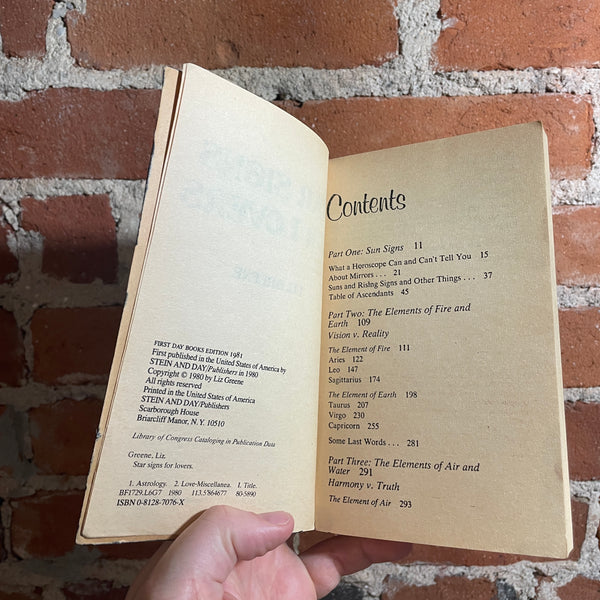 FIRST DAY BOOKS EDITION 1981
First published in the United States of America by
STEIN AND DAY/Publishers in 1980
Copyright © 1980 by Liz Greene
All rights reserved
Printed in the United States of America
STEIN AND DAY/Publishers
Scarborough House
Briarcliff Manor, N.Y. 10510
Library of Congress Cataloging in Publication Data
Greene, Liz.
Star signs for lovers.
1. Astrology. 2. Love-Miscellanea. I. Title.
BF1729.L6G7 1980 113.5'864677 80-5890
ISBN 0-8128-7076-X
Contents
Part One: Sun Signs 11
What a Horoscope Can and Can't Tell You 15
About Mirrors . . . 21
Suns and Rising Signs and Other Things . . . 37
Table of Ascendants 45
Part Two: The Elements of Fire and
Earth 109
Vision v. Reality
The Element of Fire 111
Aries 122
Leo 147
Sagittarius 174
The Element of Earth 198
Taurus 207
Virgo 230
Capricorn 255
Some Last Words . . . 281
Part Three: The Elements of Air and
Water 291
Harmony v. Truth
The Element of Air 293